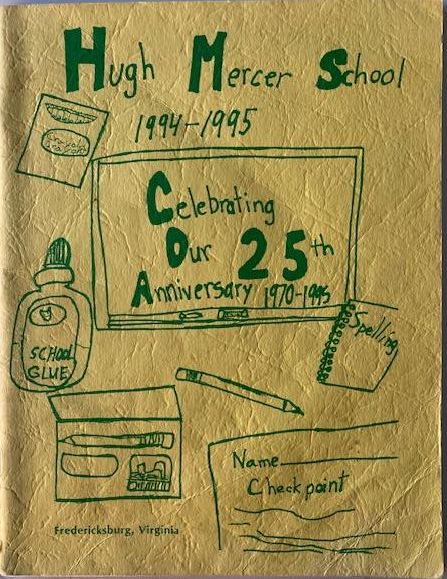 Hugh Mercer School
1994-1995
Crayola
Crayons
Celebrating
Our 25th
Anniversary 1970-1995
Spelling
SCHOOL
GLUE
Name
Checkpoint
Fredericksburg, Virginia